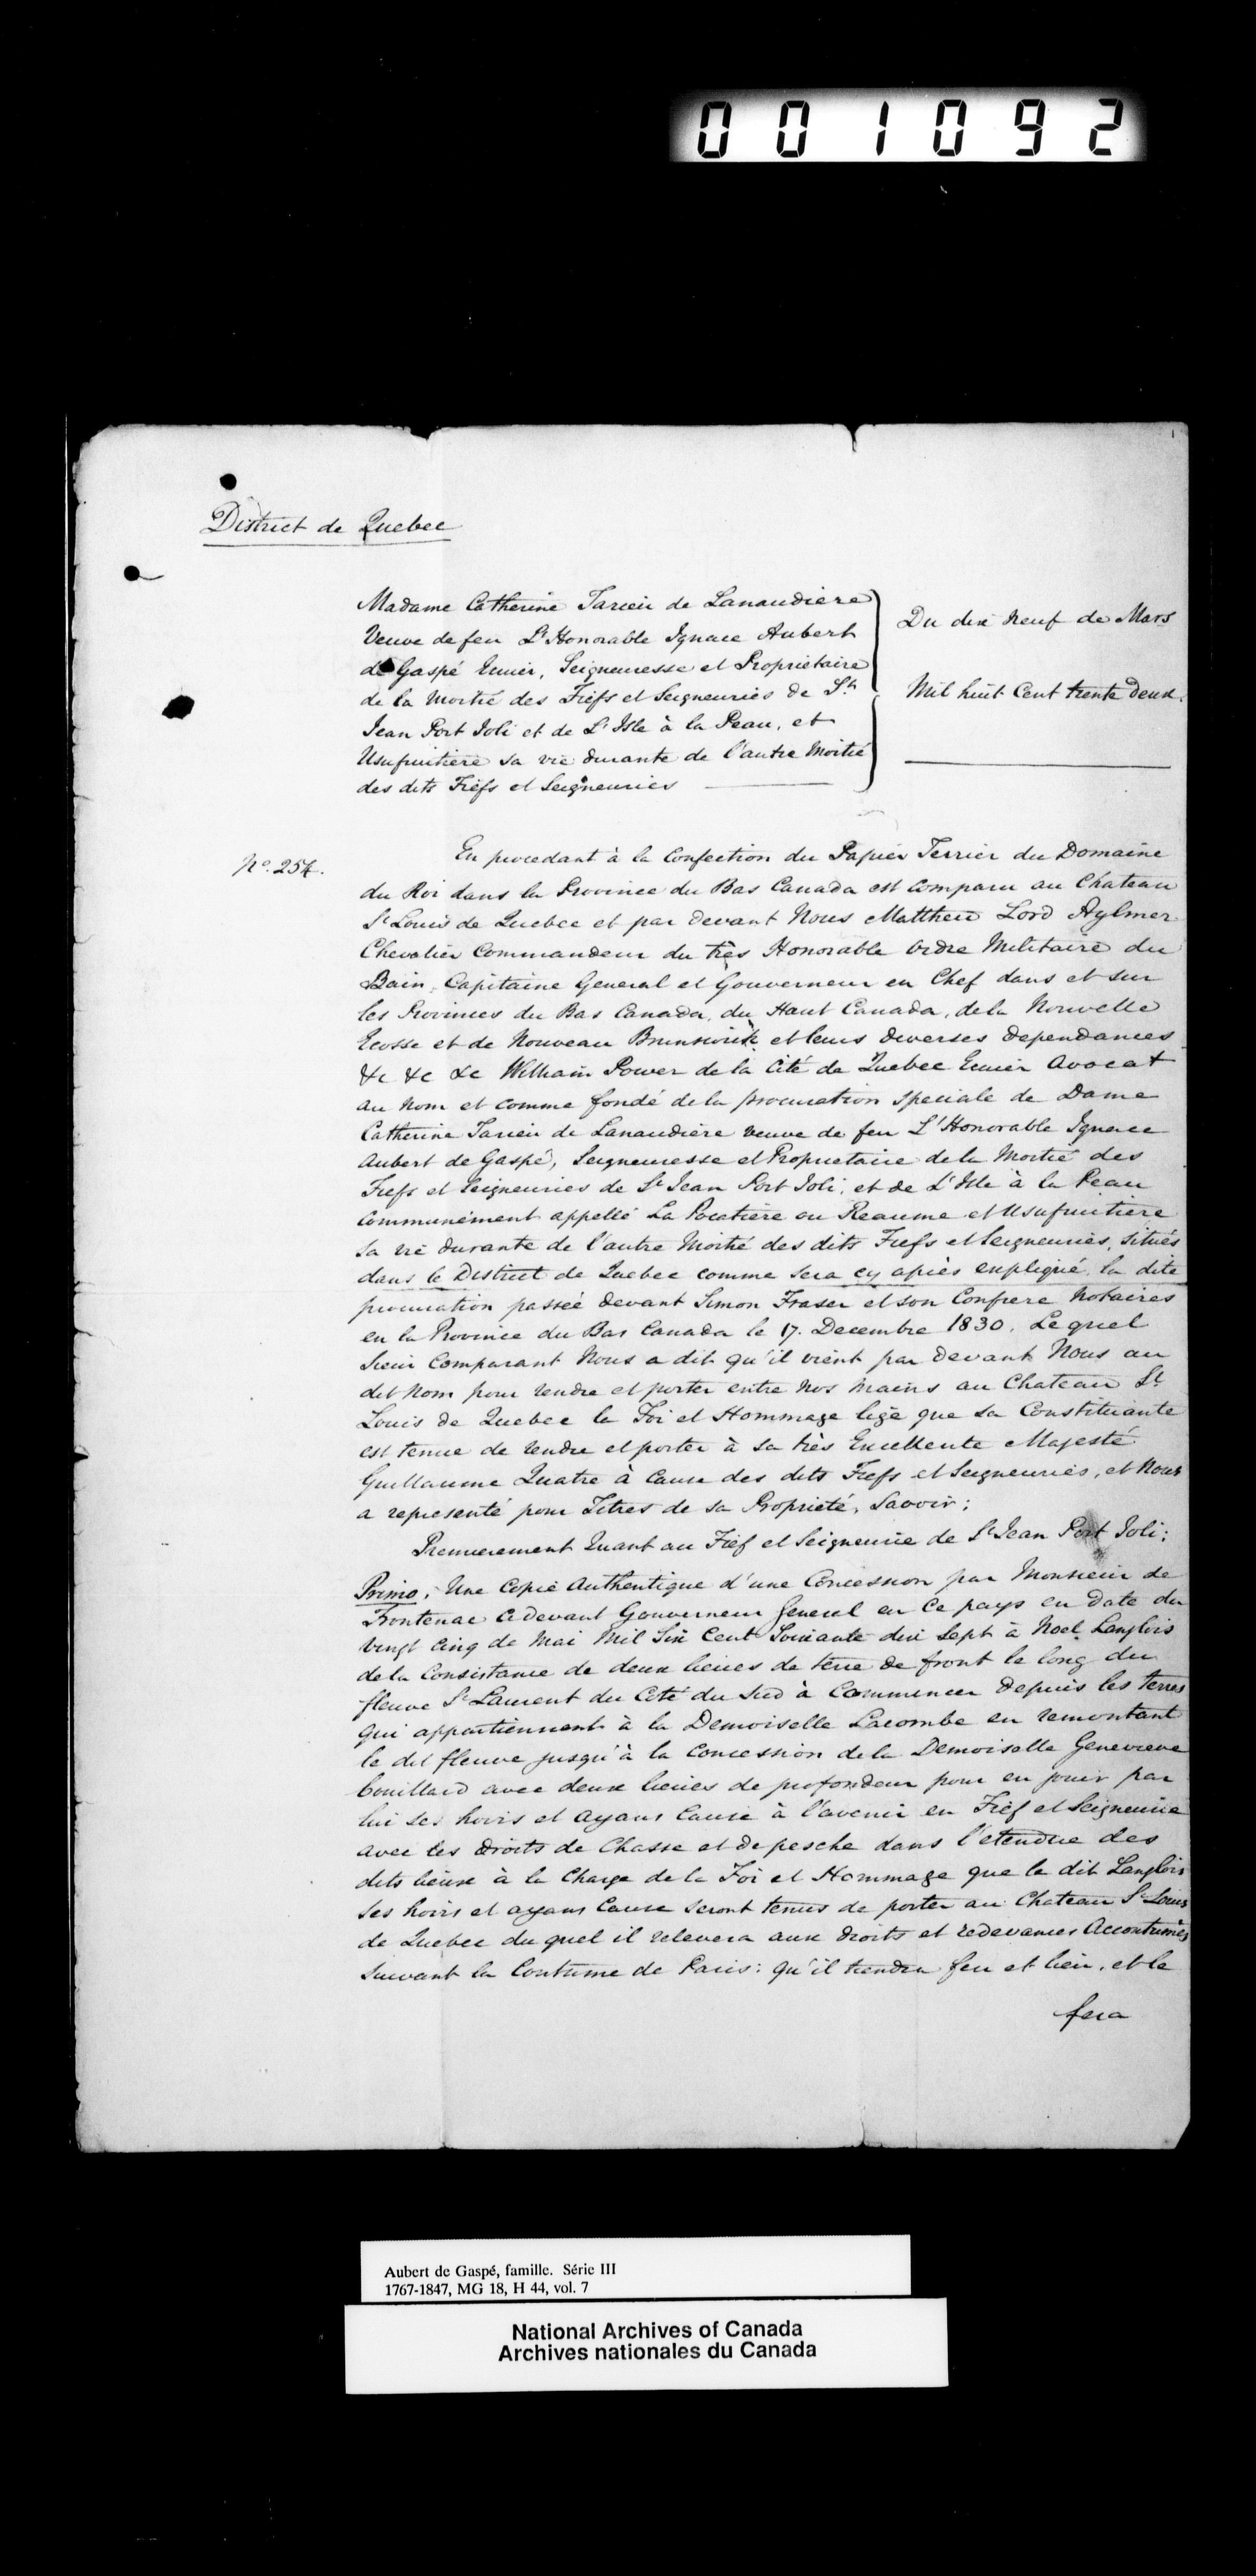 001092
District de Quebec
Madame Catherine Tarieu de Lanaudiere
Veuve de feu L'Honorable Ignace Aubert
de Gaspé Ecuier, Seigneuresse et Proprietaire
de la Moitié des Fiefs et Seigneuries de St.
Jean Port Joli et de L'Isle à la Peau, et
Usufruitiere sa vie durante de l'autre Moitié
des dits Fiefs et Seigneuries
Du dix neuf de Mars
Mil huit Cent trente deux.
No. 254.
En procedant à la Confection du Papier Terrier du Domaine
du Roi dans la Province du Bas Canada est comparu au Chateau
St Louis de Quebec et par devant Nous Matthew Lord Aylmer
Chevalier Commandeur du très Honorable Ordre Militaire du
Bain, Capitaine General et Gouverneur en Chef dans et sur
les Provinces du Bas Canada, du Haut Canada, de la Nouvelle
Ecosse et de Nouveau Brunswick et leurs diverses dependances
&c &c &c William Power de la Cité de Quebec Ecuier Avocat
au nom et comme fondé de la procuration speciale de Dame
Catherine Tarieu de Lanaudiere veuve de feu L'Honorable Ignace
Aubert de Gaspé, Seigneuresse et Proprietaire de la Moitié des
Fiefs et Seigneuries de St Jean Port Joli, et de L'Isle à la Peau
communément appellé La Pocatiere ou Reaume et Usufruitiere
sa vie durante de l'autre Moitié des dits Fiefs et Seigneuries, situés
dans le District de Quebec comme sera cy après expliqué, la dite
procuration passée devant Simon Fraser et son Confrere Notaires
en la Province du Bas Canada le 17. Decembre 1830. Lequel
Sieur Comparant Nous a dit qu'il vient par devant Nous au
dit Nom pour rendre et porter entre nos mains au Chateau St.
Louis de Quebec la Foi et Hommage lige que sa Constituante
est tenue de rendre et porter à sa très Excellente Majesté
Guillaume Quatre à Cause des dits Fiefs et Seigneuries, et Nous
a representé pour Titres de sa Proprieté, Savoir;
Premierement Quant au Fief et Seigneurie de St Jean Port Joli;
Primo, Une Copie Authentique d'une Concession par Monsieur de
Frontenac Cidevant Gouverneur General en Ce pays en Date du
vingt Cinq de Mai Mil Six Cent Soixante dix Sept à Noel Langlois
de la Consistance de deux lieues de terre de front le long du
fleuve St Laurent du Coté du Sud à Commencer depuis les terres
qui appartiennent à la Demoiselle Lacombe en remontant
le dit fleuve jusqu'à la Concession de la Demoiselle Genevieve
Couillard avec deux lieues de profondeur pour en jouir par
lui ses hoirs et ayans Cause à l'avenir en Fief et Seigneurie
avec les droits de Chasse et de pesche dans l'etendue des
dits lieux à la Charge de la Foi et Hommage que le dit Langlois
ses hoirs et ayans Cause seront tenus de porter au Chateau St Louis
de Quebec du quel il relevera aux droits et redevances Accoutumés
suivant la Coutume de Paris: qu'il tiendra feu et lieu, et le
fera
Aubert de Gaspé, famille. Série III
1767-1847, MG 18, H 44, vol. 7
National Archives of Canada
Archives nationales du Canada